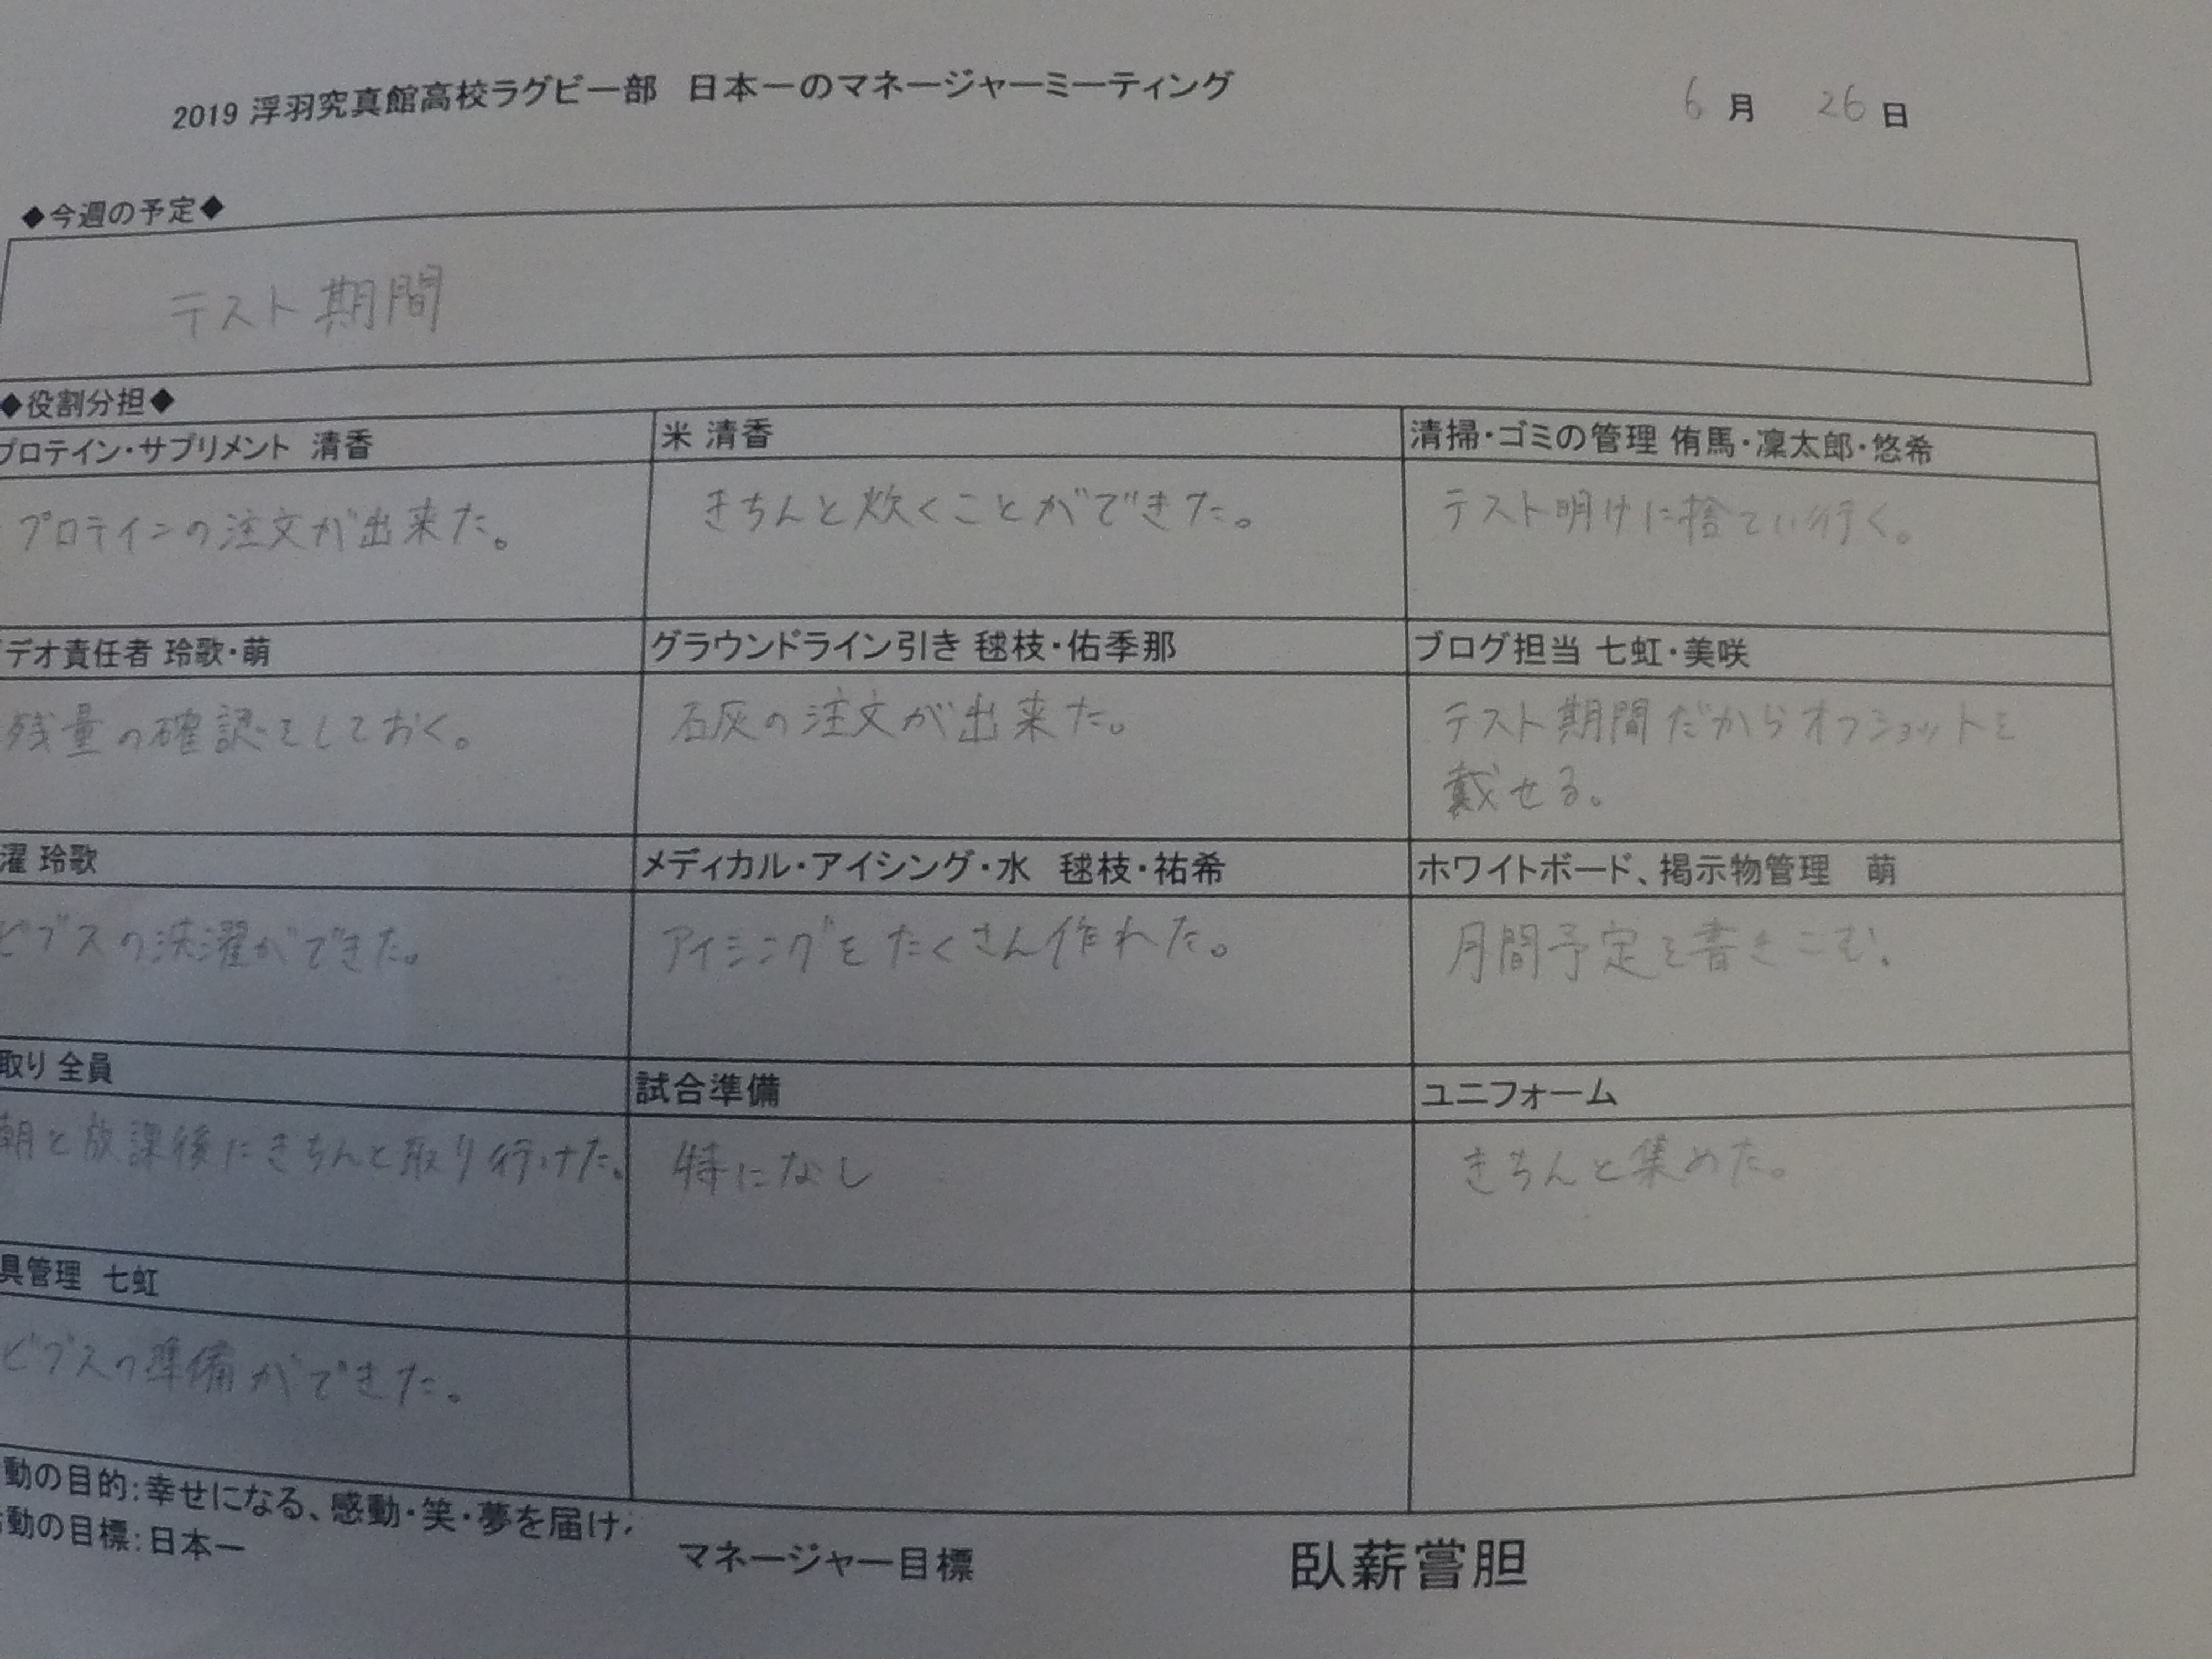 2019 浮羽究真館高校ラグビー部 日本一のマネージャーミーティング
6月 26日
◆今週の予定◆
テスト期間
◆役割分担◆
プロテイン・サプリメント 清香
米 清香
清掃・ゴミの管理 侑馬・凜太郎・悠希
プロテインの注文が出来た。
きちんと炊くことができた。
テスト明けに捨てい行く。
デオ責任者 玲歌・萌
グラウンドライン引き 毬枝・佑季那
ブログ担当 七虹・美咲
残量の確認をしておく。
石灰の注文が出来た。
テスト期間だからオフショットを
載せる。
濯 玲歌
メディカル・アイシング・水 毬枝・祐希
ホワイトボード、掲示物管理 萌
ビブスの洗濯ができた。
アイシングをたくさん作れた。
月間予定を書きこむ。
取り 全員
試合準備
ユニフォーム
朝と放課後にきちんと取り行けた。
特になし
きちんと集めた。
具管理 七虹
ビブスの準備ができた。
動の目的:幸せになる、感動・笑・夢を届け
動の目標:日本一
マネージャー目標 臥薪嘗胆